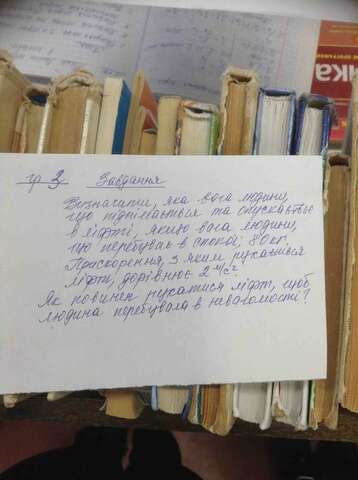 ка
гр 3 Завдання
Визначити, яка вага людини,
що піднімається та опускається
в ліфті, якщо вага людини,
що перебуває в спокої, 80кг.
Прискорення, з яким рухається
ліфт, дорівнює 2 м/с².
Як повинен рухатися ліфт, щоб
людина перебувала в невагомості?